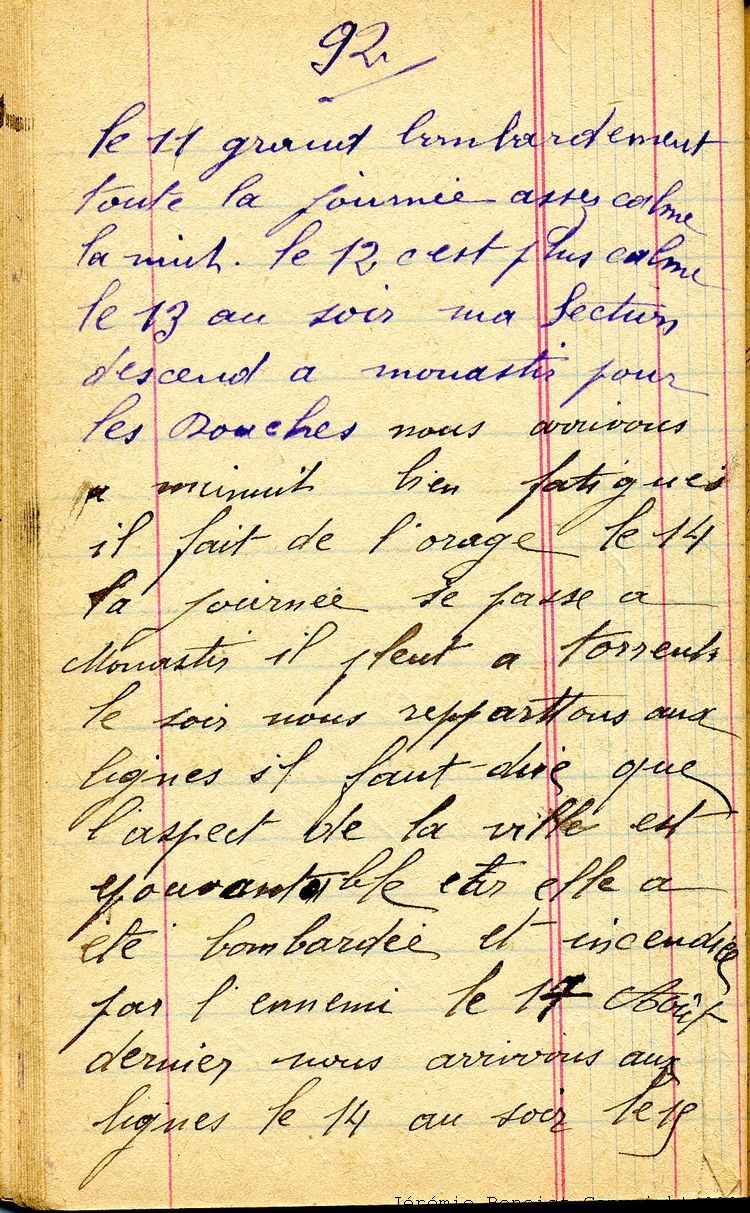 92
le 11 grand bombardement
toute la journée assez calme
la nuit. le 12 c'est plus calme
le 13 au soir ma Section
descend a monastir pour
les Douches nous arrivons
a minuit bien fatigués
il fait de l'orage le 14
la journée se passe a
Monastir il pleut a torrents
le soir nous reppartons aux
lignes il faut dire que
l'aspect de la ville est
epouvantable car elle a
été bombardée et incendiée
par l'ennemi le 17 Août
dernier nous arrivons aux
lignes le 14 au soir le 15